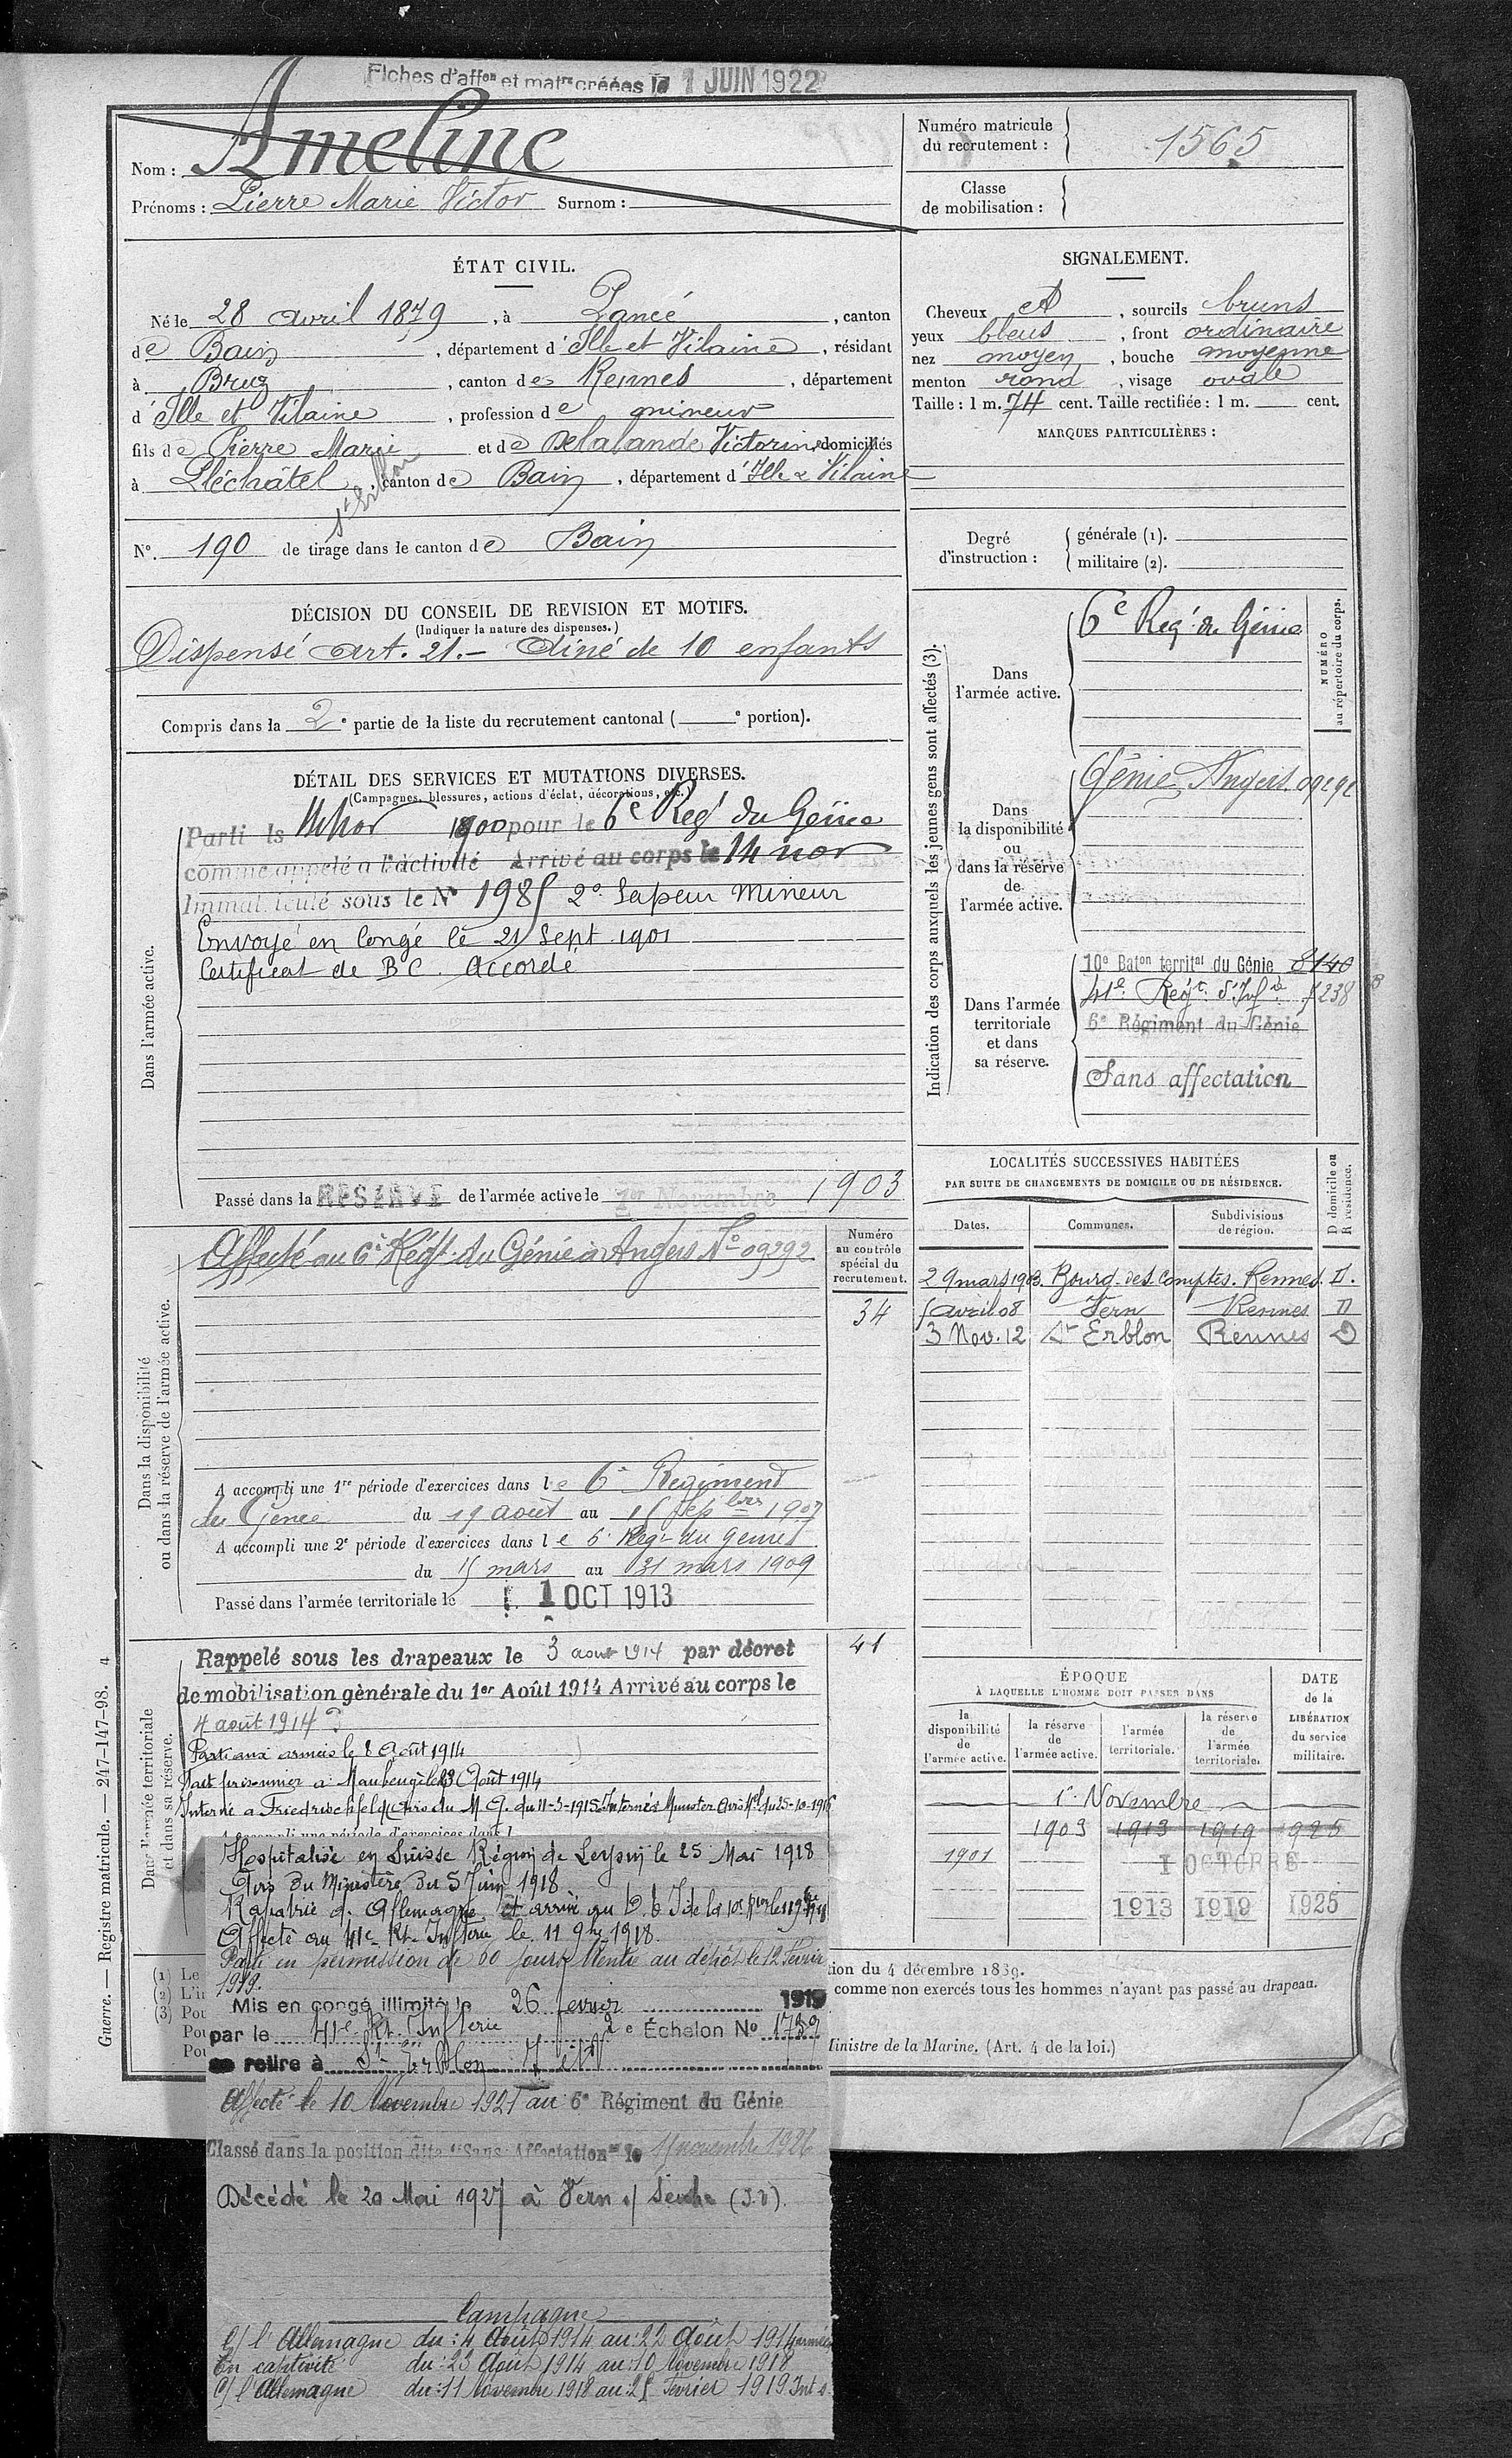 Fiches d'affon et matre créées le 1 JUIN 1922
Nom : Ameline
Prénoms : Pierre Marie Victor Surnom :
Numéro matricule du recrutement : 1565
Classe de mobilisation :
ÉTAT CIVIL.
Né le 28 avril 1879, à Pancé, canton
de Bain, département d'Ille et Vilaine, résidant
à Bruz, canton de Rennes, département
d'Ille et Vilaine, profession de mineur
fils de Pierre Marie et de Delalande Victorine domiciliés
à Pléchâtel, canton de Bain, département d'Ille & Vilaine
St Erblon
No. 190 de tirage dans le canton de Bain
SIGNALEMENT.
Cheveux et, sourcils bruns
yeux bleus, front ordinaire
nez moyen, bouche moyenne
menton rond, visage ovale
Taille : 1 m. 74 cent. Taille rectifiée : 1 m. cent.
MARQUES PARTICULIÈRES :
Degré d'instruction : générale (1).
militaire (2).
DÉCISION DU CONSEIL DE REVISION ET MOTIFS.
(Indiquer la nature des dispenses.)
Dispensé art. 21.- Aîné de 10 enfants
Compris dans la 2e partie de la liste du recrutement cantonal ( e portion).
DÉTAIL DES SERVICES ET MUTATIONS DIVERSES.
(Campagnes, blessures, actions d'éclat, décorations, etc.)
Dans l'armée active.
Parti le 14 nov 1900 pour le 6e Reg' du Génie
comme appelé à l'activité Arrivé au corps le 14 nov
Immatriculé sous le No 1985 2e Sapeur Mineur
Envoyé en congé le 21 Sept. 1901
Certificat de BC. accordé
Passé dans la RÉSERVE de l'armée active le 1er Novembre 1903
Indication des corps auxquels les jeunes gens sont affectés (3).
NUMÉRO au répertoire du corps.
Dans l'armée active.
6e Reg' du Génie
Dans la disponibilité ou dans la réserve de l'armée active.
Génie Angers 09292
Dans l'armée territoriale et dans sa réserve.
10e Baton territal du Génie 8140
41e Régt d'Infie 5238
6e Régiment du Génie
Sans affectation
Dans la disponibilité ou dans la réserve de l'armée active.
Affecté au 6e Régt du Génie à Angers No 09292
Numéro au contrôle spécial du recrutement.
34
A accompli une 1re période d'exercices dans le 6e Régiment
du Génie du 19 août au 15 septbre 1907
A accompli une 2e période d'exercices dans le 6e Reg' du génie
du 15 mars au 31 mars 1909
Passé dans l'armée territoriale le 1 OCT 1913
LOCALITÉS SUCCESSIVES HABITÉES
PAR SUITE DE CHANGEMENTS DE DOMICILE OU DE RÉSIDENCE.
Dates. Communes. Subdivisions de région. D domicile ou R résidence.
29 mars 1903. Bourg-des-Comptes. Rennes. D.
5 avril 08 Vern Rennes D
3 Nov. 12 St Erblon Rennes D
Dans l'armée territoriale et dans sa réserve.
Rappelé sous les drapeaux le 3 aout 1914 par décret
41
de mobilisation générale du 1er Août 1914 Arrivé au corps le
4 août 1914
Parti aux armées le 8 Août 1914
Fait prisonnier à Maubeuge le 23 Août 1914
Interné a Friedrichsfeld avis du M. G. du 11-3-1915 Interné à Munster avis du 25-10-1916
Hospitalisé en Suisse Région de Leysin le 25 Mai 1918
Avis du Ministère du 5 Juin 1918
Rapatrié d'Allemagne et arrivé au
Affecté au 41e Rt Infterie le 11 9bre 1918.
Parti en permission de 60 jours Rentré au dépôt le 12 Février
1919.
Mis en congé illimité le 26 fevrier 1919
par le 41e Rt Infterie 2e Échelon No 1739
se retire à St Erblon I et V
Affecté le 10 Novembre 1921 au 6e Régiment du Génie
Classé dans la position dite "Sans Affectation" le 15 novembre 1926
Décédé le 20 Mai 1927 à Vern s/ Seiche (I.V).
Campagne
C/ l'Allemagne du : 4 Août 1914 au : 22 Août 1914 armées
En captivité du : 23 Août 1914 au : 10 Novembre 1918
C/ l'Allemagne du : 11 Novembre 1918 au : 25 Février 1919 Int
ÉPOQUE
À LAQUELLE L'HOMME DOIT PASSER DANS
la disponibilité de l'armée active. la réserve de l'armée active. l'armée territoriale. la réserve de l'armée territoriale.
DATE de la LIBÉRATION du service militaire.
1er Novembre
1903 1913 1919 1925
1901 1 OCTOBRE
1913 1919 1925
tion du 4 décembre 1889.
comme non exercés tous les hommes n'ayant pas passé au drapeau.
Ministre de la Marine. (Art. 4 de la loi.)
(1) Le
(2) L'in
(3) Pou
Pou
Pou
Guerre. — Registre matricule. — 247-147-98. 4